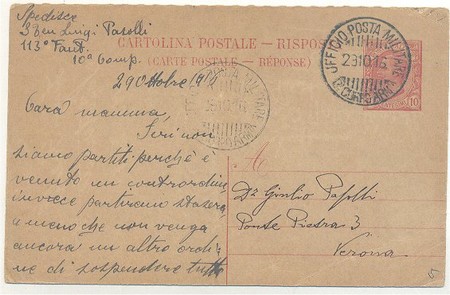 Spedisce
S. Ten Luigi Pasolli
113° Fant.
10a Comp.
CARTOLINA POSTALE - RISPOS
(CARTE POSTALE - RÉPONSE)
UFFICIO POSTA MILITARE
29.10.16
29 Ottobre 1916
UFFICIO POSTA MILITARE
29.10.16
10
Cara mamma,
Ieri non
siamo partiti perchè è
venuto un contrordine,
invece partiremo stasera
a meno che non venga
ancora un altro ordi-
ne di sospendere tutto
A
Dr. Giulio Pasolli
Ponte Pietra 3
Verona